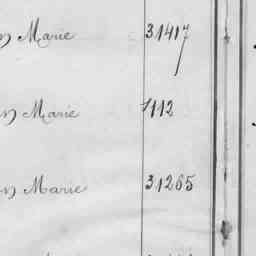 Marie 31417
Marie 1112
Marie 31265